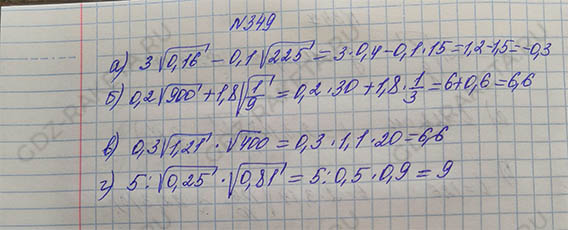 №349
а) 3√0,16 - 0,1√225 = 3·0,4-0,1·15=1,2-1,5=-0,3
б) 0,2√900 + 1,8√1/9 = 0,2·30+1,8·1/3=6+0,6=6,6
в) 0,3√1,21·√400 = 0,3·1,1·20=6,6
г) 5:√0,25·√0,81 = 5:0,5·0,9 = 9